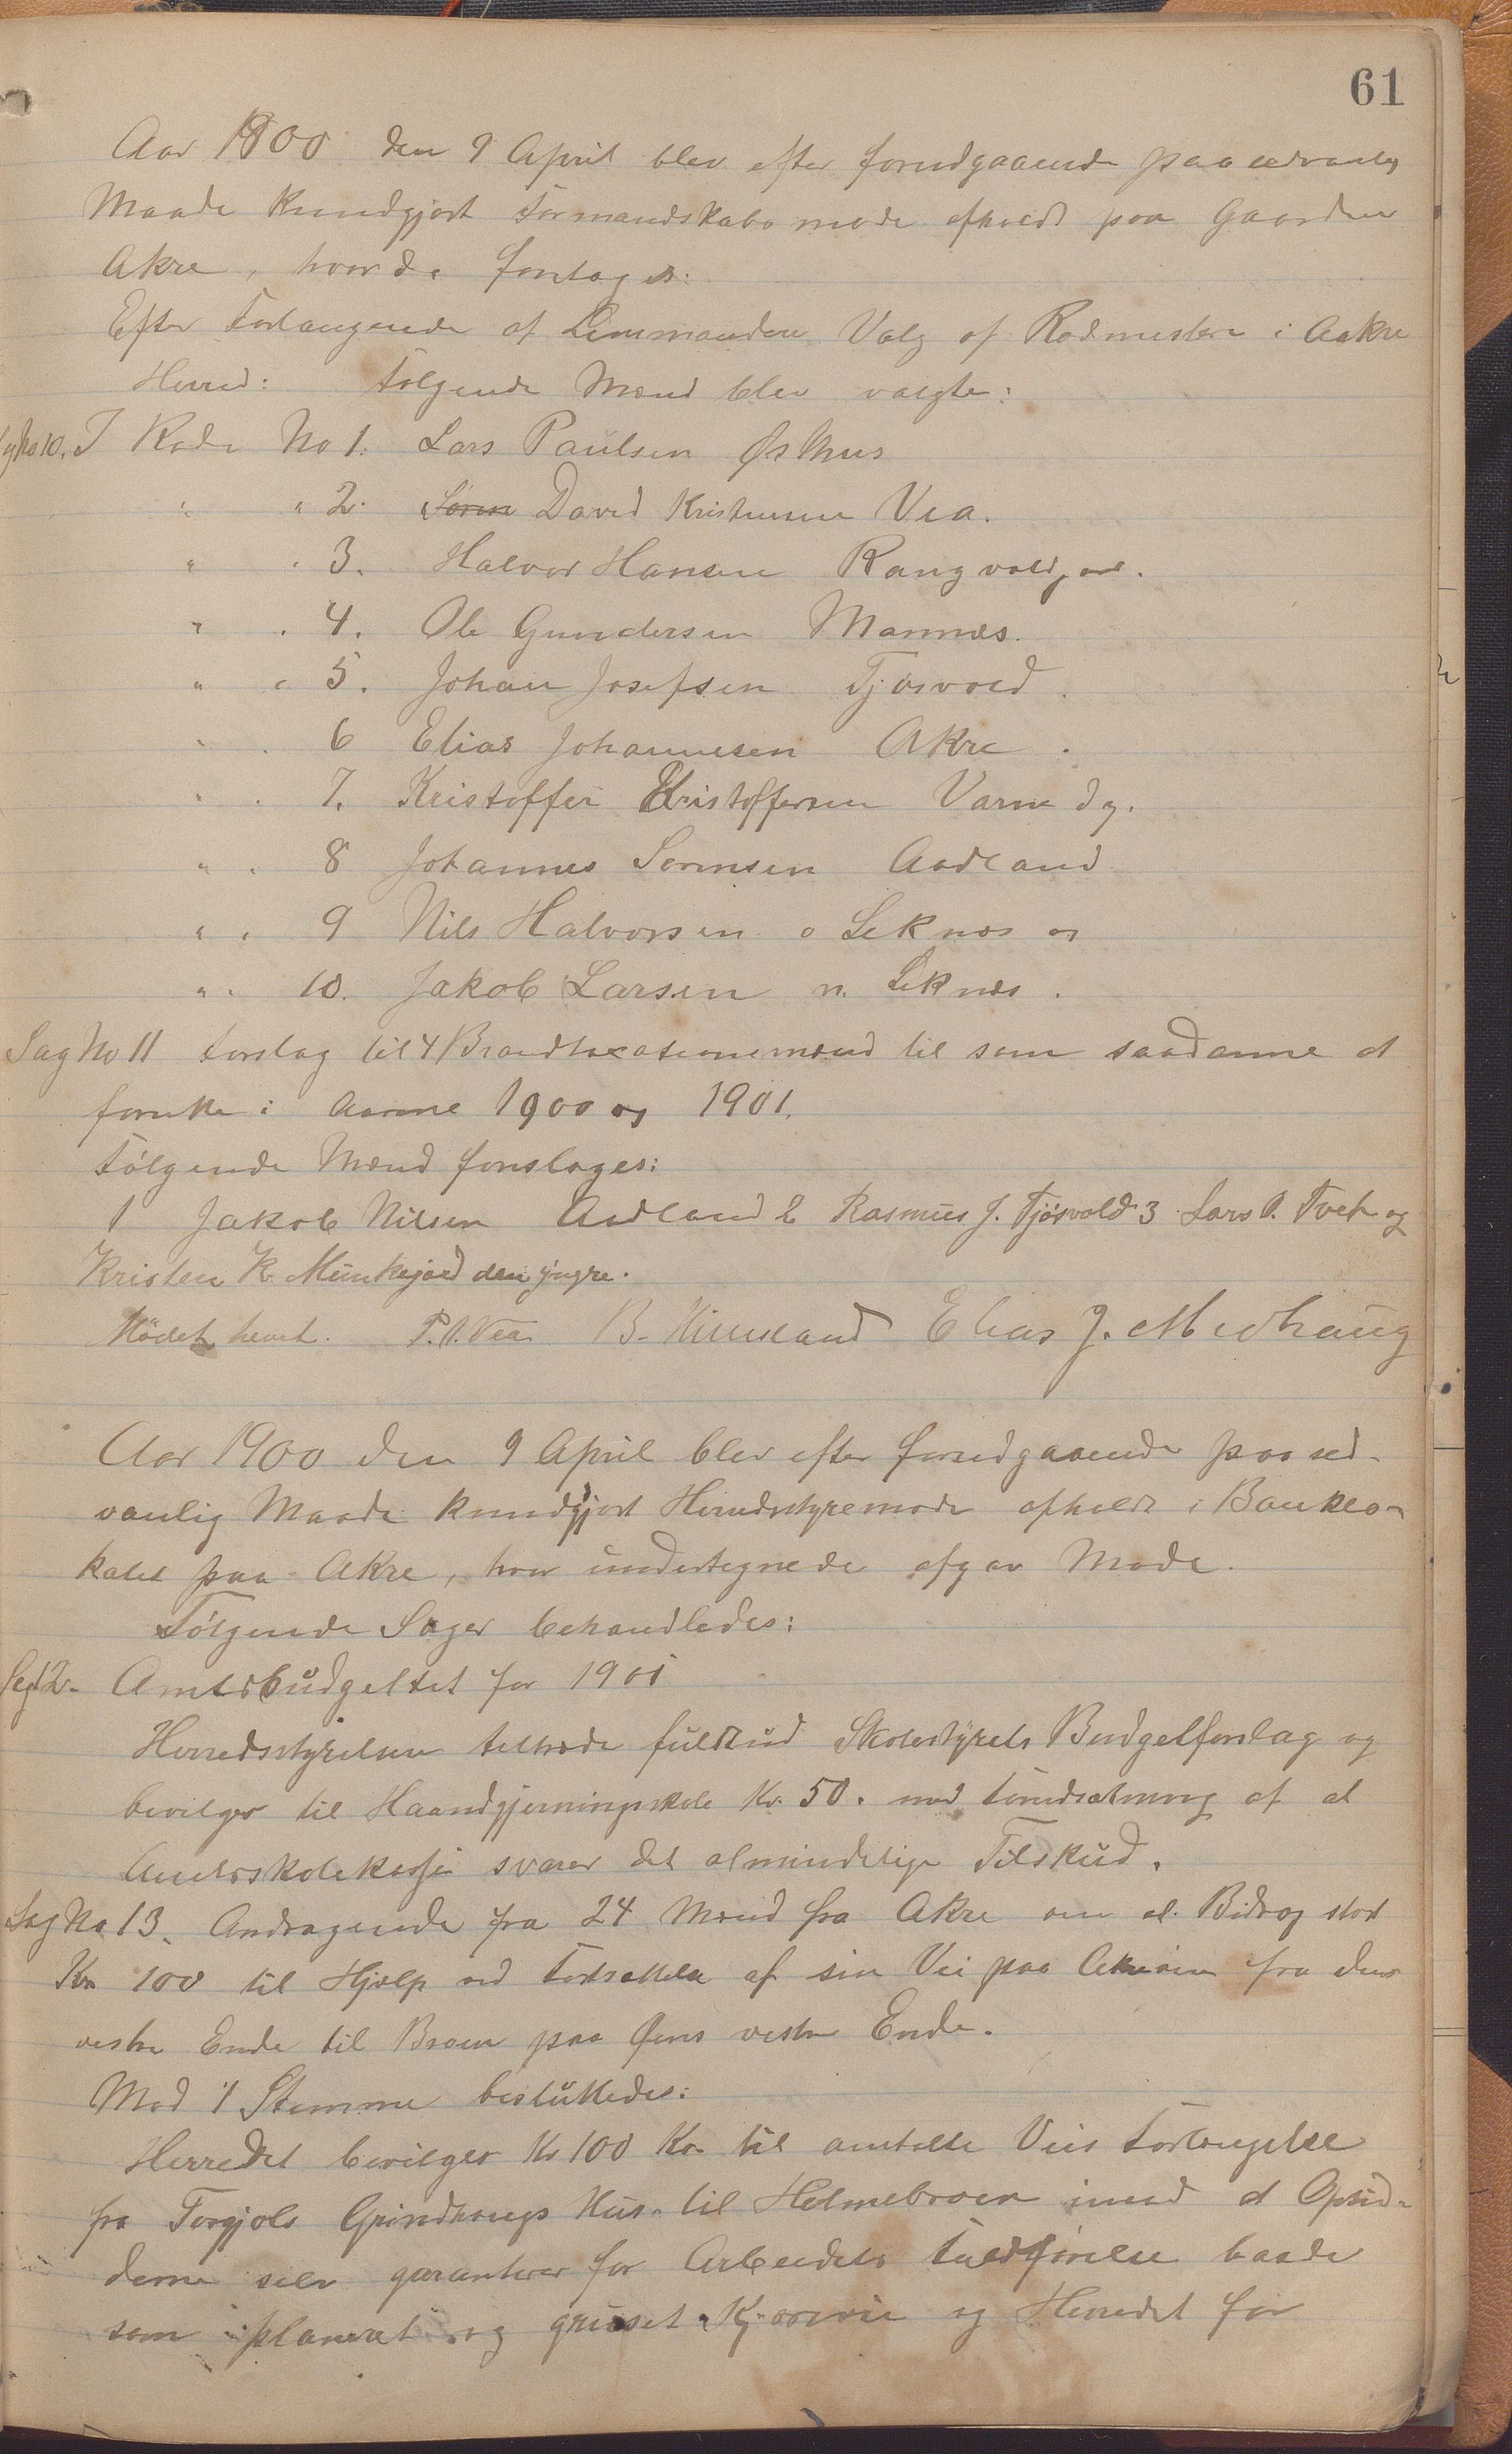 61
Aar 1900 den 9 April blev efter forudgaaende paa sedvanlig
Maade kundgjort Formandskabsmøde afholdt paa Gaarden
Akre, hvor da foretages:
Efter Forlangende af Lensmanden Valg af Rodmestere i Aakre
Herred: Følgende Mænd blev valgte:
Sag No 10. I Rode No 1. Lars Paulsen Østhus
" " 2. Søren David Kristensen Vea.
" " 3. Halvor Hansen Rangvaldjod.
" " 4. Ole Gundersen Mannes.
" " 5. Johan Josefsen Tjøsvold.
" " 6 Elias Johannesen Akre.
" " 7. Kristoffer Kristoffersen Varne dy.
" " 8 Johannes Sørensen Aadland
" " 9 Nils Halvorsen o Liknes og
" " 10. Jakob Larsen n. Liknes.
Sag No 11 Forslag til 4 Brandtaxationsmænd til som saadanne at
forrette i Aarene 1900 og 1901.
Følgende Mænd foreslages:
1 Jakob Nilsen Aadland 2 Rasmus J. Tjøsvold 3 Lars P. Tveit og
Kristen K. Munkejord den yngre.
Mødet hevet. P. J. Vea B. Hinderland Elias J. Medhaug
Aar 1900 den 9 April blev efter forudgaaende paa sed-
vanlig Maade kundgjort Herredsstyremøde afholdt i Banklo-
kalet paa Akre, hvor undertegnede afgav Møde.
Følgende Sager behandledes:
Sag 12. Amtsbudgettet for 1901
Herredsstyrelsen tiltræde fuldtud Skolestyrets Budgetforslag og
bevilger til Haandgjerningsskole Kr. 50. med Forudsætning af at
Amtsskolekassen svarer det almindelige Tilskud.
Sag No 13. Andragende fra 24 Mænd fra Akre om et Bidrag stort
Kr 100 til Hjælp ved Fortsættelse af sin Vei paa Akreøen fra dens
vestre Ende til Broen paa Øens vestre Ende.
Mod 1 Stemme besluttedes:
Herredet bevilger Kr 100 Kr til omtalte Veis Forlængelse
fra Torgjels Grindhaugs Hus til Holmebroen imod at Opsid-
derne selv garanterer for Arbeidets Fuldførelse baade
som planeret og gruset Kjørevei og Herredet for